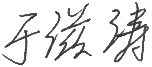 于滋涛